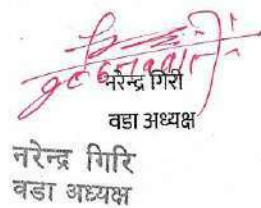 नरेन्द्र गिरी
वडा अध्यक्ष
नरेन्द्र गिरि
वडा अध्यक्ष